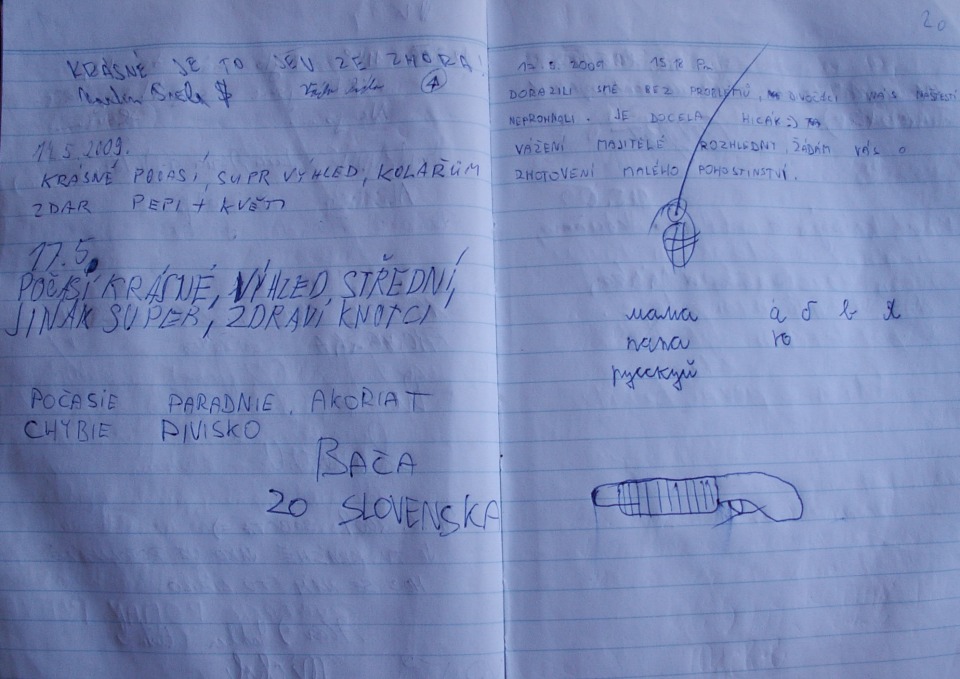 KRÁSNÉ JE TO JEN ZE ZHORA!
4
14.5.2009.
KRÁSNÉ POČASÍ, SUPR VÝHLED, KOLAŘŮM
ZDAR PEPI + KVĚTA
17.5.
POČASÍ KRÁSNÉ, VÝHLED, STŘEDNÍ,
JINAK SUPER, ZDRAVÍ KNOTCI
POČASIE PARADNIE, AKORIAT
CHYBIE PIVISKO
BAČA
ZO SLOVENSKA
20
2009 15:18 Pm
DORAZILI SME BEZ PROBLÉMŮ,
NEPROHNALI. JE DOCELA HICÁK:)
VÁŽENÍ MAJITELÉ ROZHLEDNY ŽÁDÁM VÁS O
ZHOTOVENÍ MALÉHO POHOSTINSTVÍ.
мама а б в я
папа ю
русский